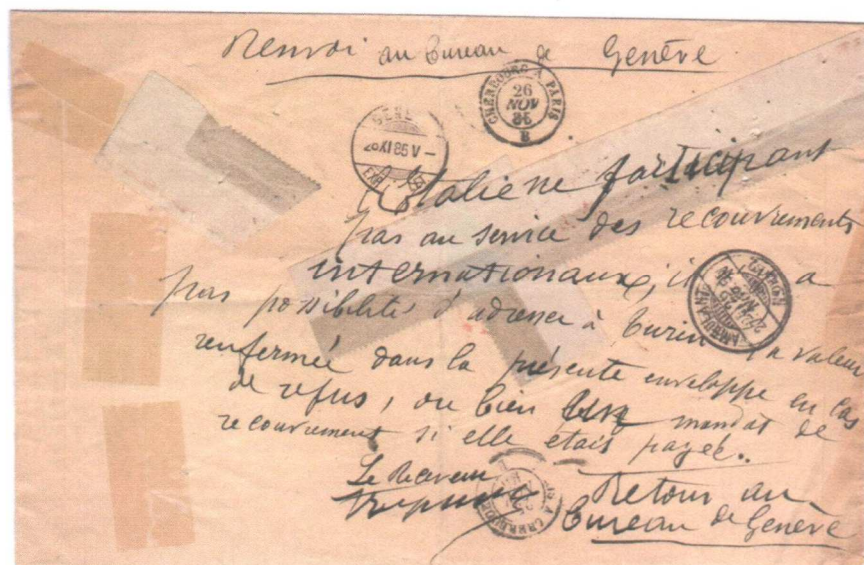 Renvoi au Bureau de Genève
CHERBOURG A PARIS
26
NOV
B
GENÈ
XI 95 V –
L'Italie ne participant
pas au service des recouvrements
internationaux, il a
pas possibilité d'adresser à Turin la valeur
renfermée dans la présente enveloppe en cas
de refus, ou bien un mandat de
recouvrement si elle était payée.
Le Receveur
Retour au
Bureau de Genève
AMBULANT
CHERBOURG